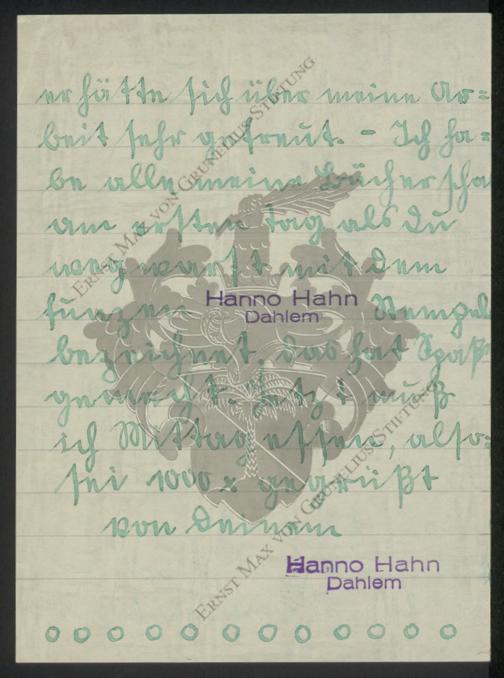 er hätte sich über meine Ar=
beit sehr gefreut. – Ich ha=
be alle meine Bücher scho
am ersten Tag als Du
weg warst mit dem
Hanno Hahn
Dahlem
Stempel
bezeichnet, das hat Spaß
gemacht. Jetzt muß
ich Mittag essen, also:
sei 1000 x gegrüßt
von Deinem
Hanno Hahn
Dahlem
ERNST MAX VON GRUNELIUS-STIFTUNG
ERNST MAX VON GRUNELIUS-STIFTUNG